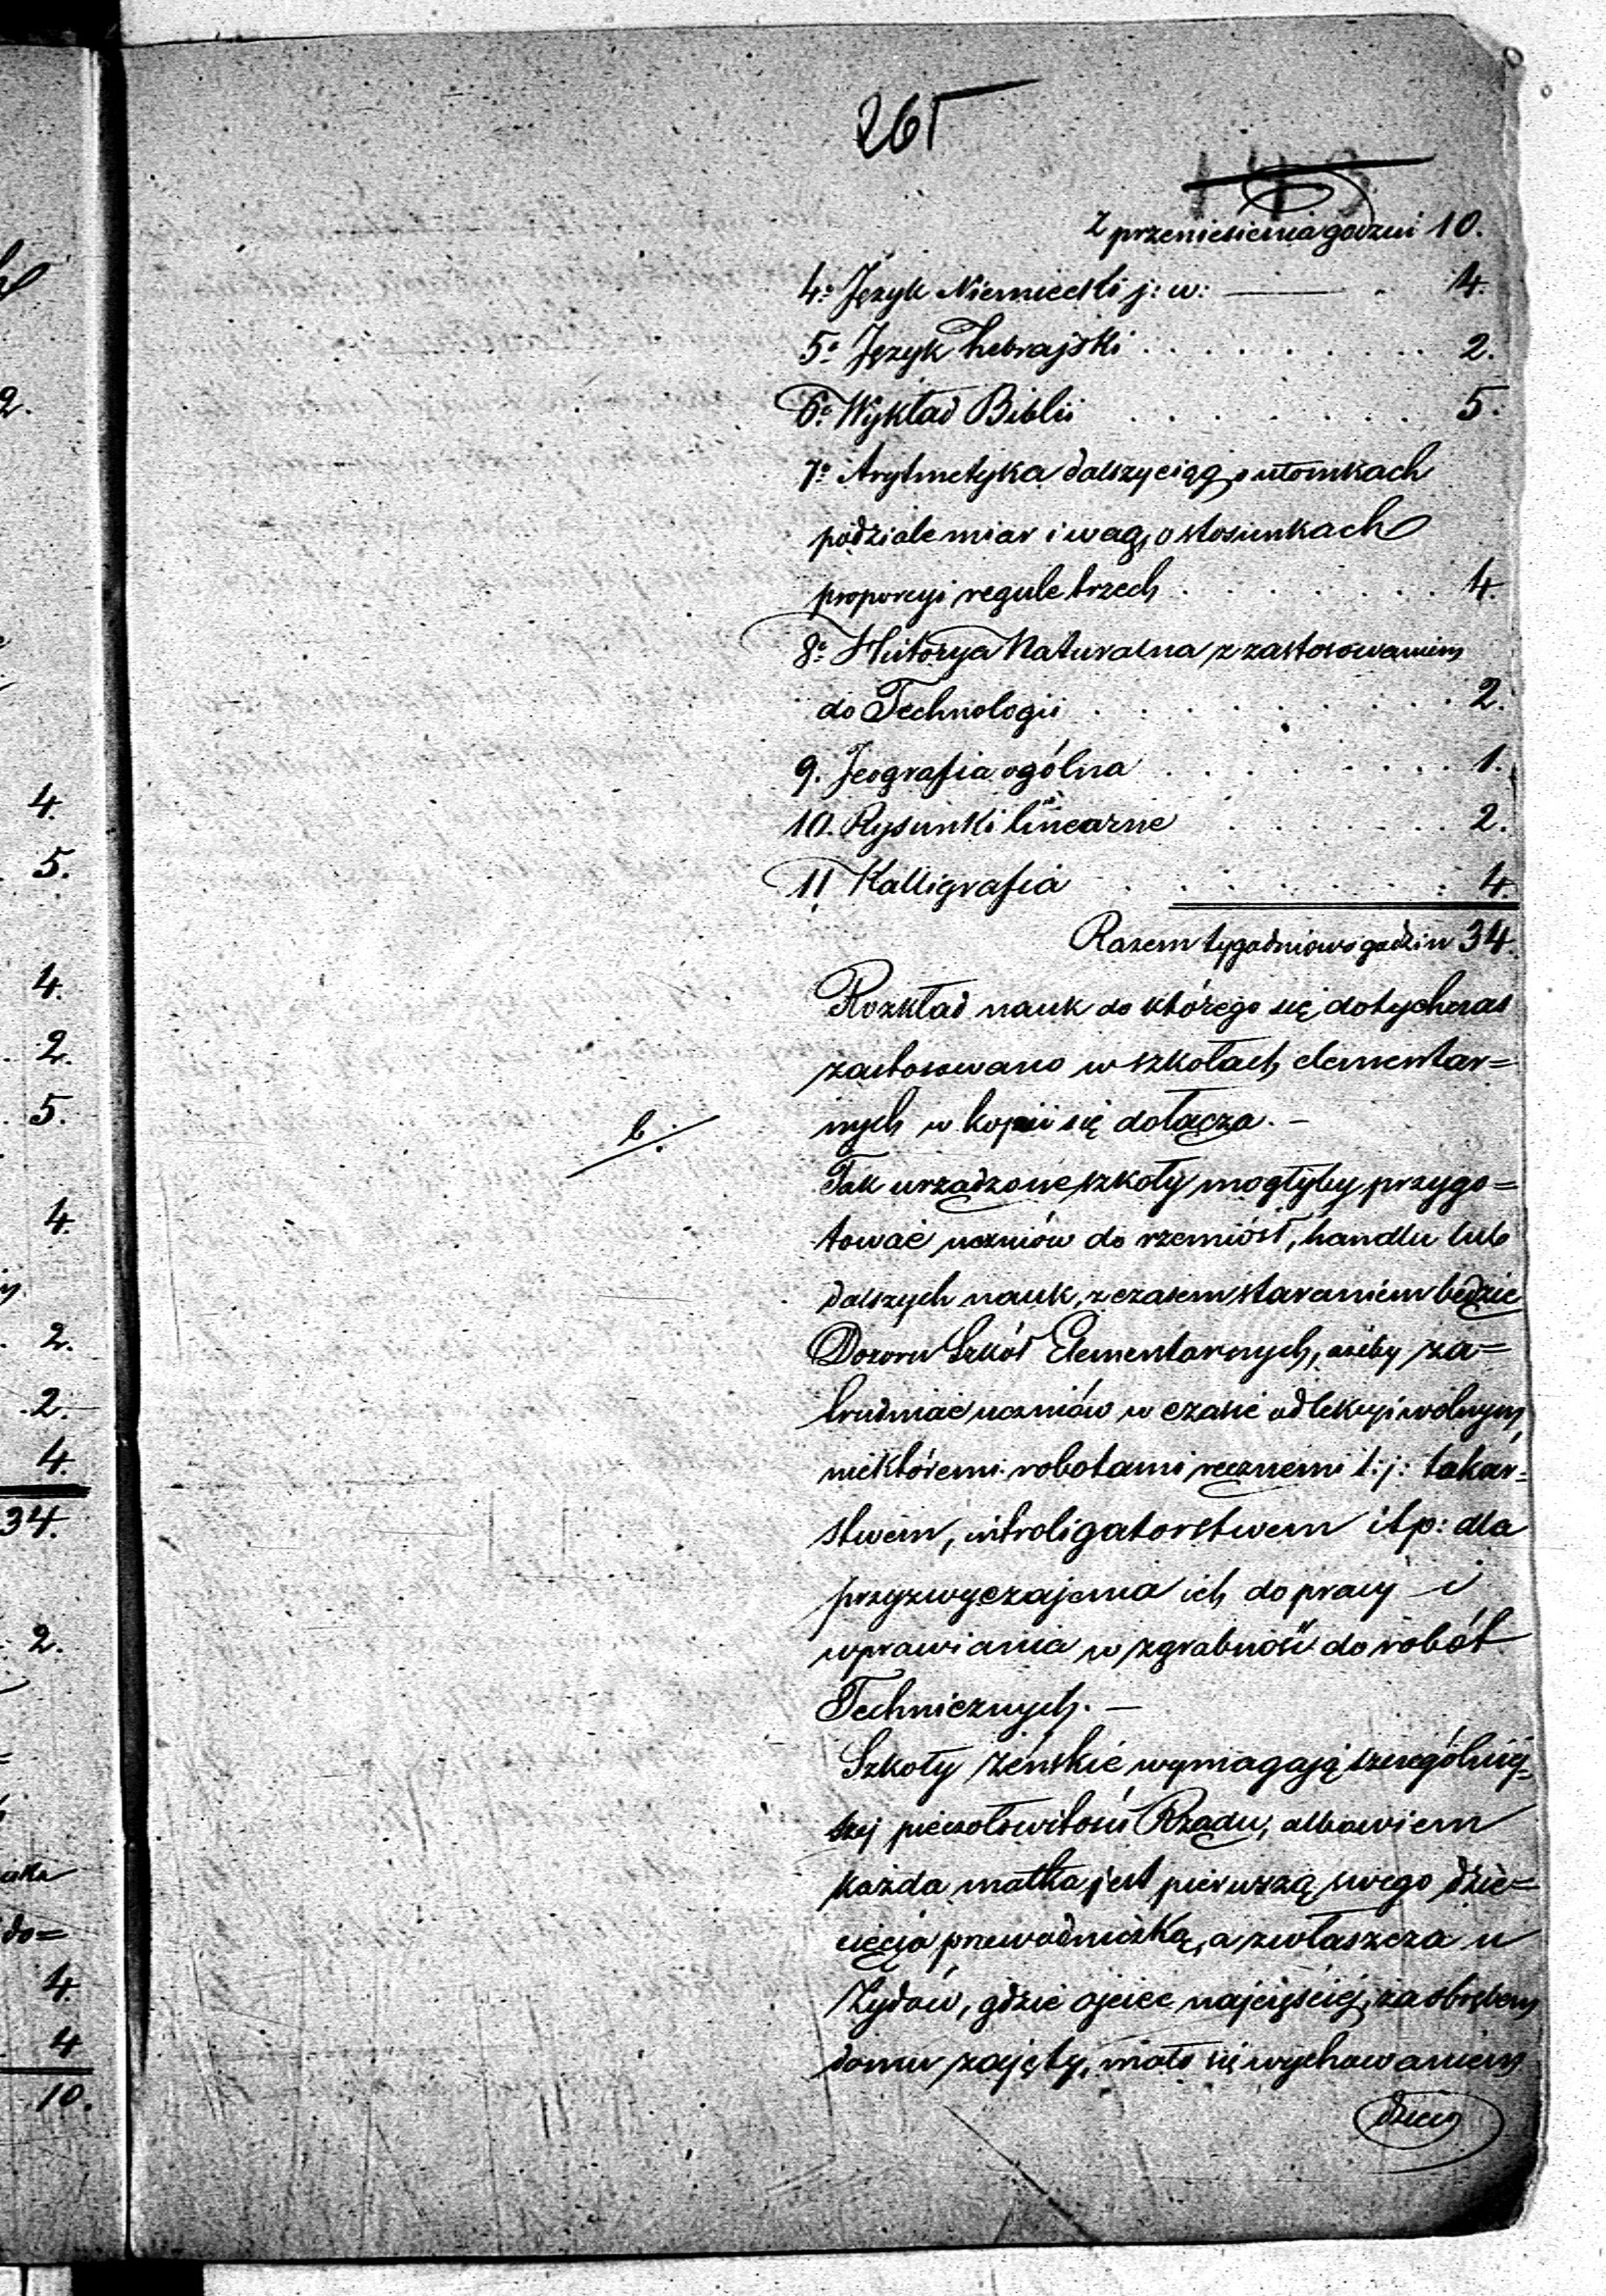 265
z przeniesienia godzin 10.
4.o Język Niemiecki j: w: 4.
5.o Język hebrajski . . . . . . . . . . 2.
6.o Wykład Biblii . . . . . . . . 5.
7.o Arytmetyka dalszy ciąg, o ułomkach
podziale miar i wag, o stosunkach
proporcyi regule trzech . . . . . . . . 4.
8.o Historya Naturalna z zastosowaniem
do Technologii . . . . . . . . . . 2.
9. Jeografia ogólna . . . . . . . . 1.
10. Rysunki linearne . . . . . . 2.
11 Kalligrafia . . . . . . . . 4.
Razem tygodniowo godzin 34.
Rozkład nauk do którego się dotychczas
zastosowano w szkołach elementar=
nych w kopii się dołącza. —
b.
Tak urządzone szkoły mogłyby przygo=
tować uczniów do rzemiósł, handlu lub
dalszych nauk, z czasem staraniem będzie
Dozoru Szkół Elementarnych, ażeby za=
trudniać uczniów w czasie od lekcyi wolnym,
niektóremi robotami ręcznemi t: j: tokar=
stwem, introligatorstwem itp: dla
przyzwyczajenia ich do pracy i
wprawiania w zgrabność do robót
Technicznych. —
Szkoły żeńskie wymagają szczególniej=
szej pieczołowitości Rządu, albowiem
każda matka jest pierwszą swego dzie=
cięcia przewodniczką, a zwłaszcza u
Żydów, gdzie ojciec najczęściej, za obrębem
domu zajęty, mało się wychowaniem
dzieci
4.
5.
4.
2.
5.
4.
2.
2.
4.
34.
2.
do=
4.
4
10.